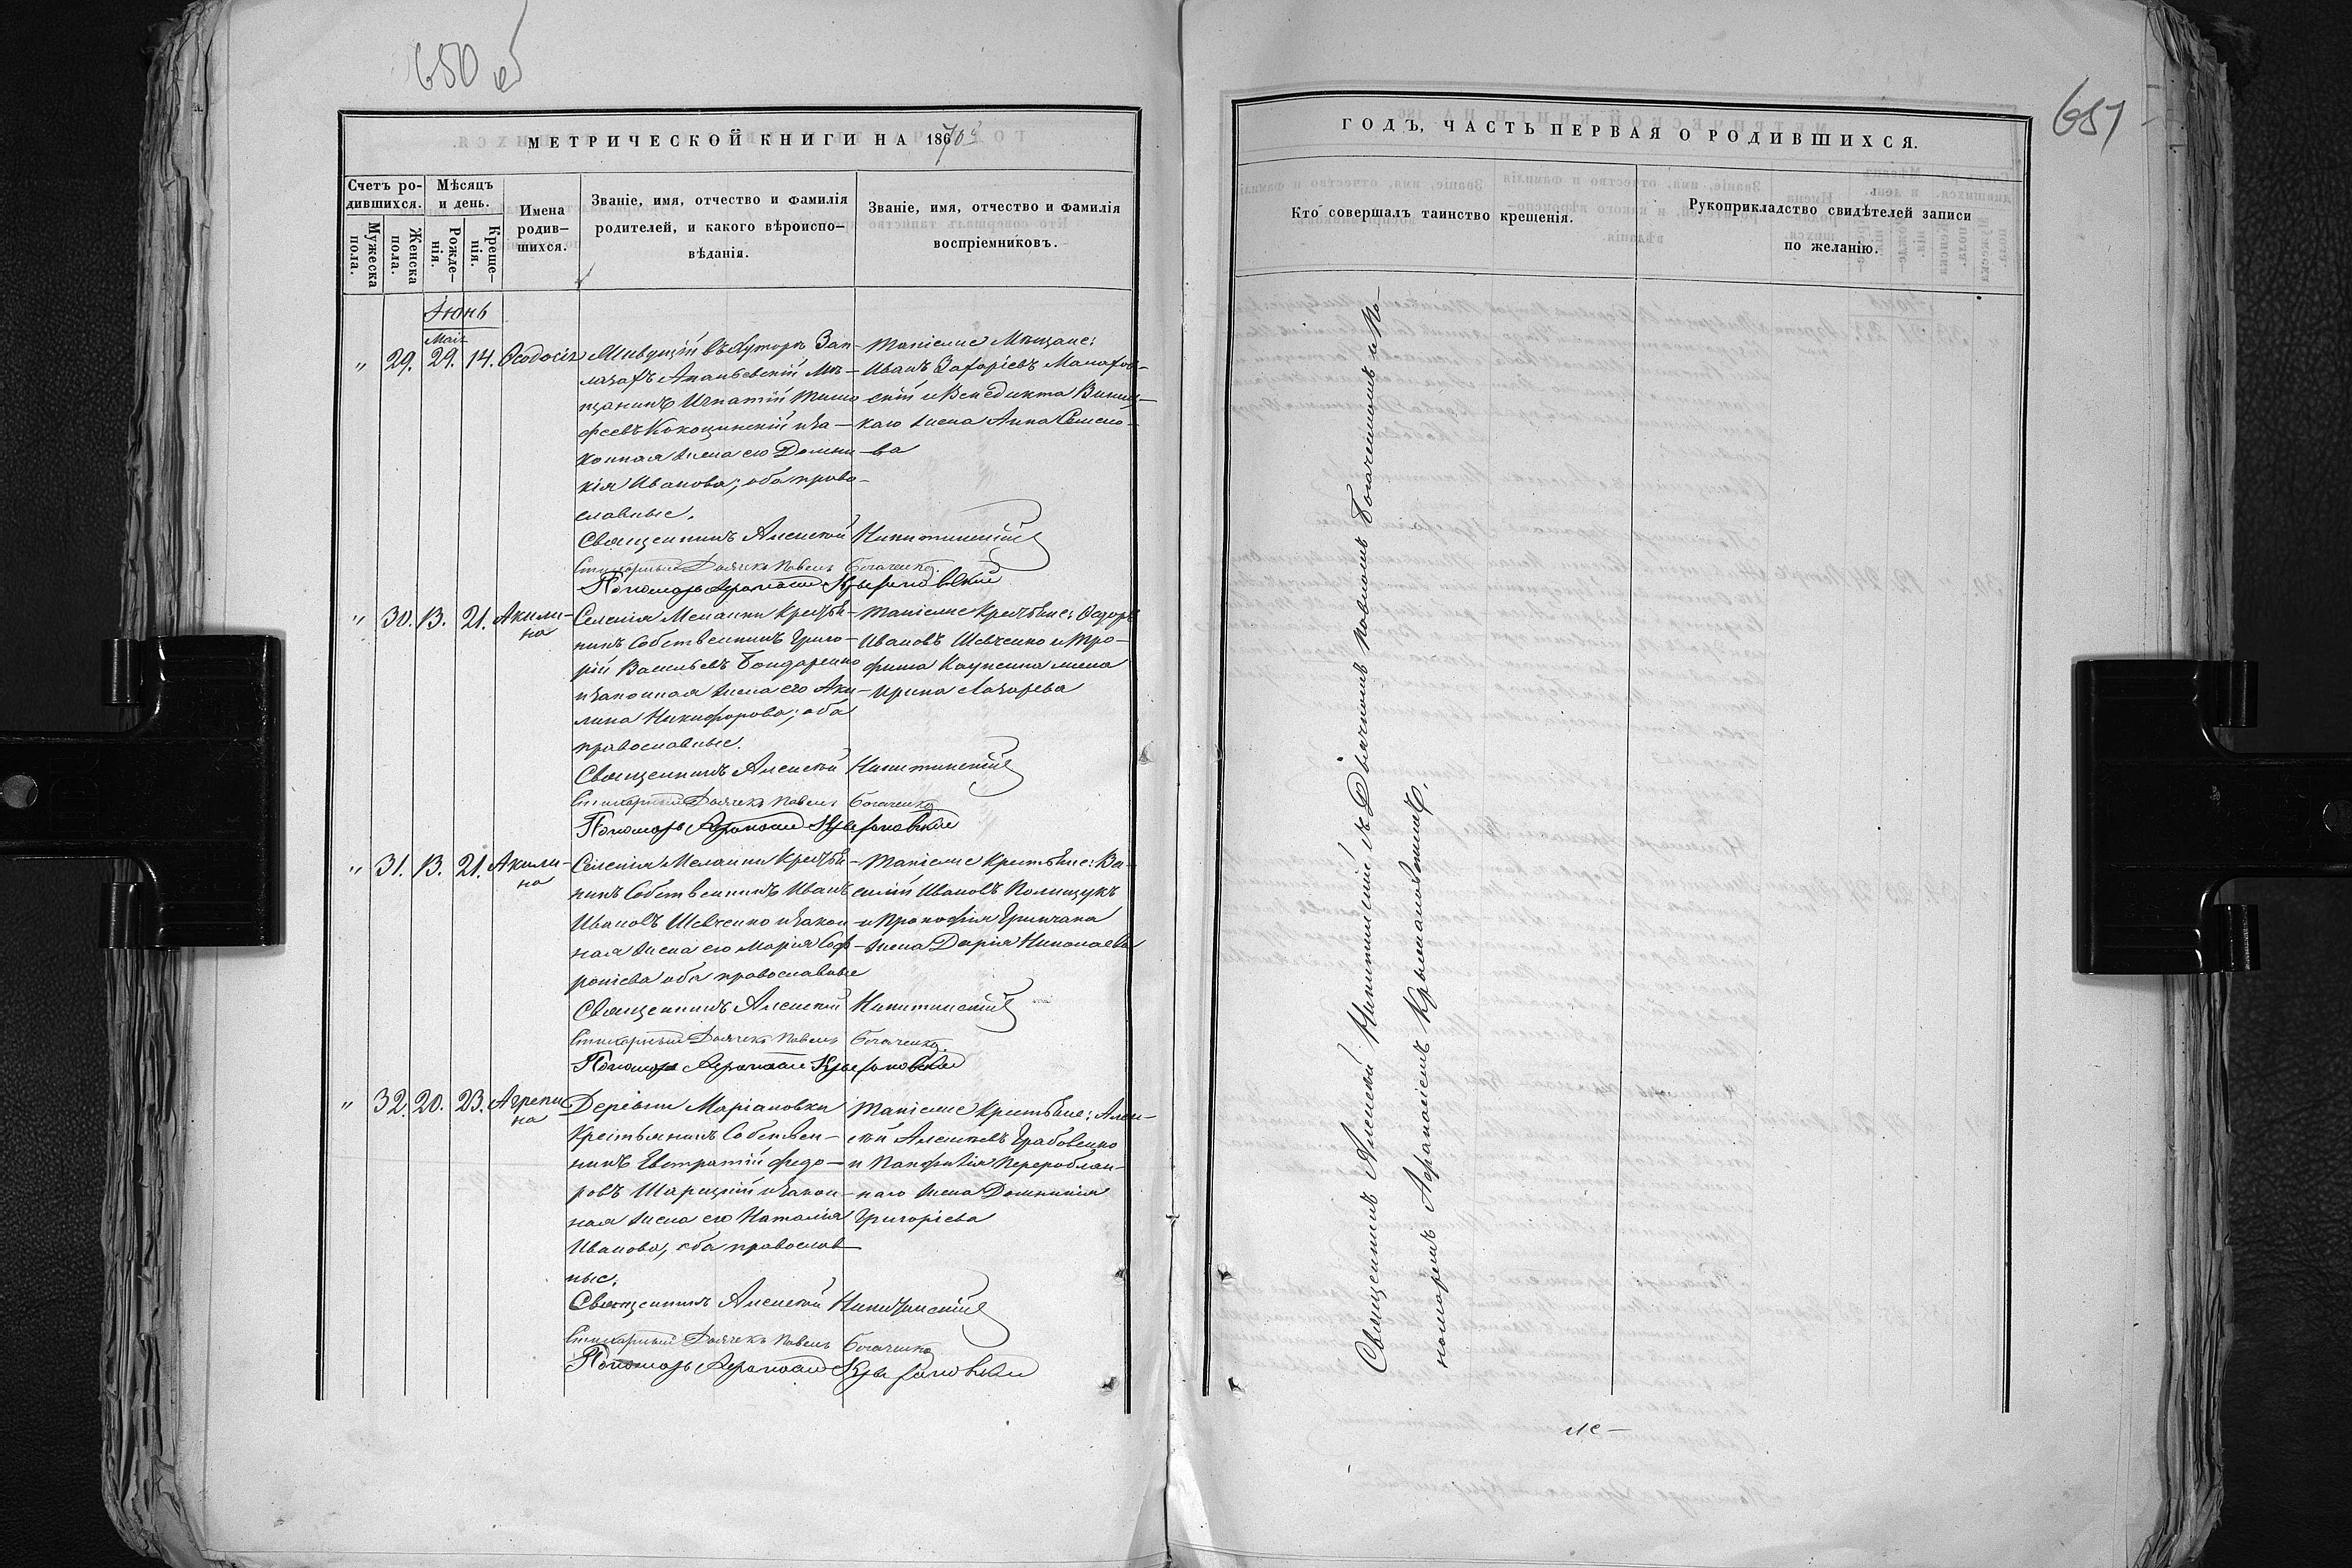 650 об
МЕТРИЧЕСКОЙ КНИГИ НА 1870й
Счетъ ро-
дившихся.
Мужеска
пола.
Женска
пола.
Мѣсяцъ
и день.
Рожде-
нія.
Креще-
нія.
Имена
родив-
шихся.
Званіе, имя, отчество и фамилія
родителей, и какого вѣроиспо-
вѣданія.
Званіе, имя, отчество и фамилія
воспріемниковъ.
Іюнь
Маія
" 29. 29. 14. Ѳеодосія
Живущій въ Хуторѣ
Ананьевскій Мѣ-
щанинъ Игнатій Тимо
феевъ Кокошинскій и за-
конная жена его Домни
кія Иванова; оба право-
славные.
Такіеже Мѣщане:
Иванъ Захаріевъ
скій и Венедикта
каго жена Анна Семено-
ва
Священникъ Алексѣй Никитинскій
Стихарный Дьячекъ Павелъ Богаченко.
Пономарь Афанасій Крыжановскій
" 30. 13. 21. Акили-
на
Селенія Меланки Кресть-
нинъ Собственникъ Григо-
рій Васильевъ Бондаренко
и законная жена его Аки-
лина Никифорова; оба
православные.
Такіеже Крестьяне: Ѳедоръ
Ивановъ Шевченко и Тро-
фима жена
Ирина Лазарева
Священникъ Алексѣй Никитинскій
Стихарный Дьячекъ Павелъ Богаченко
Пономарь Афанасій Крыжановскій
" 31. 13. 21. Акили-
на
Селенія Меланки Кресть-
нинъ Собственникъ Иванъ
Ивановъ Шевченко и закон-
ная жена его Марія Соф-
роніева оба православные
Такіеже Крестьяне: Ва-
силій Ивановъ Полищукъ
и Прокофія Гринчака
жена Дарія Николаева
Священникъ Алексѣй Никитинскій
Стихарный Дьячекъ Павелъ Богаченко.
Пономарь Афанасій Крыжановскій
" 32. 20. 23. Агрепи
на
Деревни Маріановки
Крестьянинъ Собствен-
никъ Евстратій Федо-
ровъ Шарецкій и закон-
ная жена его Наталія
Иванова, оба православ
ные.
Такіеже Крестьяне: Алек-
сѣй Алексѣевъ Грабовенко
и Панфилія
наго жена Домникія
Григоріева
Священникъ Алексѣй Никитинскій
Стихарный Дьячекъ Павелъ Богаченко
Пономарь Афанасій Крыжановскій
651
ГОДЪ, ЧАСТЬ ПЕРВАЯ О РОДИВШИХСЯ.
Кто совершалъ таинство крещенія.
Рукоприкладство свидѣтелей записи
по желанію.
Священникъ Алексѣй Никитинскій съ Дьячкомъ Павломъ Богаченкомъ и По-
номаремъ Афанасіемъ Крыжановскимъ.